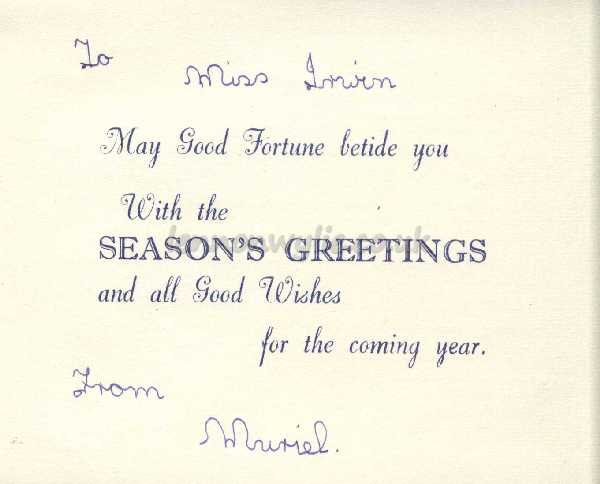 To
Miss Irwin
May Good Fortune betide you
With the
lennonwylie.co.uk
SEASON'S GREETINGS
and all Good Wishes
for the coming year.
From
Muriel.